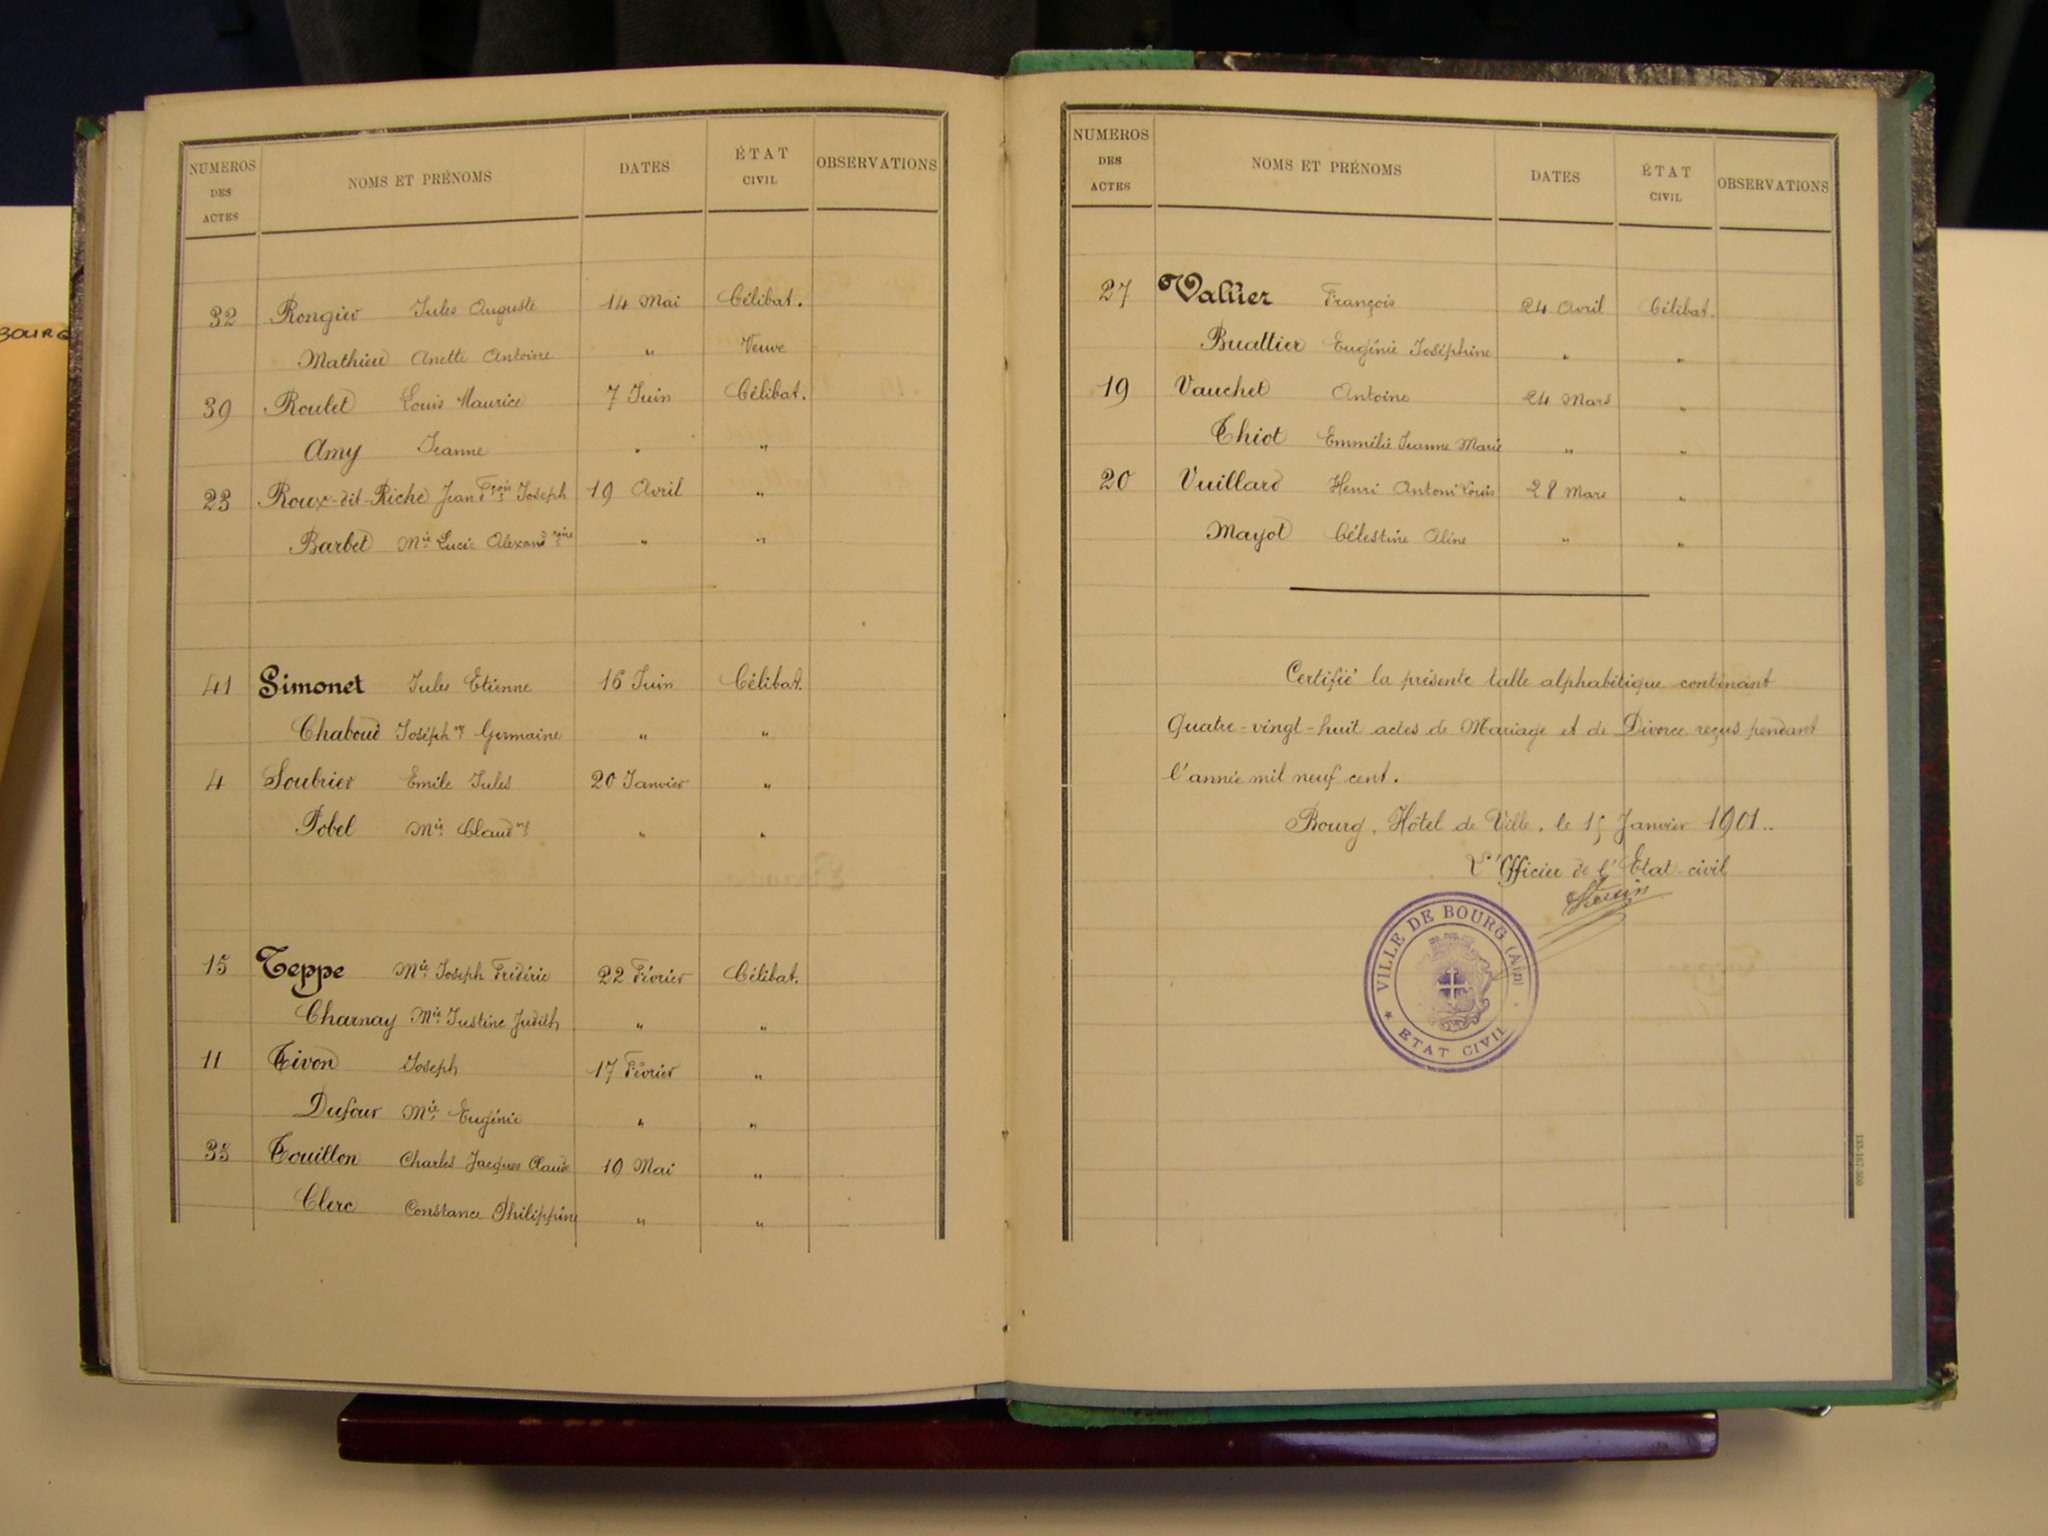 BOURG
NUMEROS DES ACTES NOMS ET PRÉNOMS DATES ÉTAT CIVIL OBSERVATIONS
32 Rongier Jules Auguste 14 Mai Célibat.
Mathieu Anette Antoine " Veuve
39 Roulet Louis Maurice 7 Juin Célibat.
Amy Jeanne " "
23 Roux-dit-Riche Jean Fçois Joseph 19 Avril "
Barbet Mie Lucie Alexandrine " "
41 Simonet Jules Etienne 16 Juin Célibat.
Chaboud Joséphne Germaine " "
4 Soubrier Emile Jules 20 Janvier "
Pobel Mie Claudne " "
15 Teppe Mie Joseph Frédéric 22 Février Célibat.
Charnay Mie Justine Judith " "
11 Tivon Joseph 17 Février "
Dufour Mie Eugénie " "
35 Touillon Charles Jacques Claude 19 Mai "
Clerc Constance Philippine " "
NUMEROS DES ACTES NOMS ET PRÉNOMS DATES ÉTAT CIVIL OBSERVATIONS
27 Vallier François 24 Avril Célibat.
Buattier Eugénie Joséphine " "
19 Vauchet Antoine 24 Mars "
Thiot Emmélie Jeanne Marie " "
20 Vuillard Henri Antoni Louis 28 Mars "
Mayot Célestine Aline " "
Certifié la présente table alphabétique contenant
Quatre-vingt-huit actes de Mariage et de Divorce reçus pendant
l'année mil neuf cent.
Bourg, Hôtel de Ville, le 15 Janvier 1901..
L'Officier de l'Etat-civil
VILLE DE BOURG (Ain)
* ETAT CIVIL